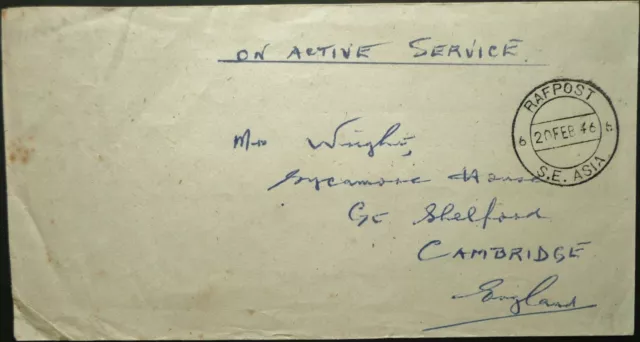 ON ACTIVE SERVICE
RAFPOST
6 20 FEB 46
S.E. ASIA
Mrs Wright,
Sycamore House
Gt Shelford
CAMBRIDGE
England